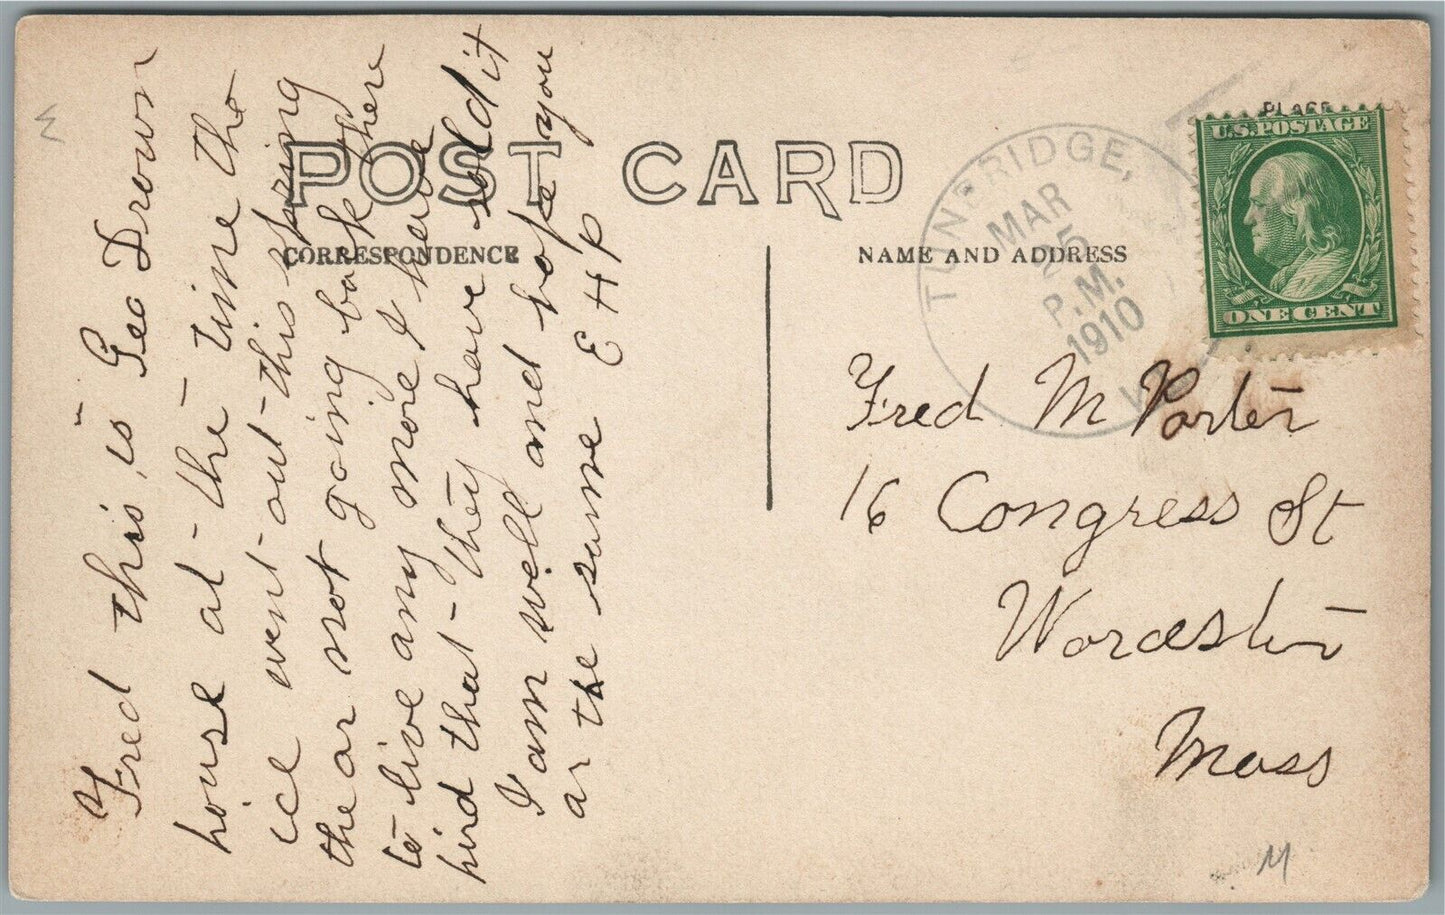 POST CARD
CORRESPONDENCE
NAME AND ADDRESS
Fred this is Geo Drown
house at the time the
ice went out this spring
the ar not going back there
to live any more I have
hird that they have sold it
I am well and hope you
ar the same E H P
TUNBRIDGE,
MAR
25
P.M.
1910
PLACE
U.S. POSTAGE
ONE CENT
Fred M Porter
16 Congress St
Worcester
Mass
M